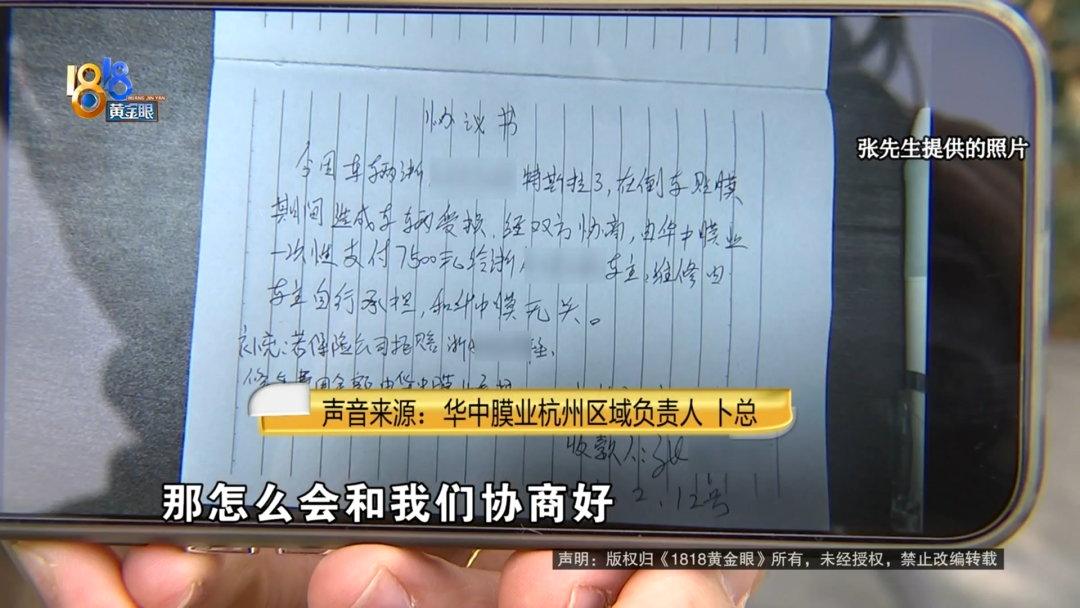 1818
HUANG JIN YAN
黄金眼
张先生提供的照片
协议书
今因车辆浙 特斯拉3,在倒车贴膜
期间造成车辆受损,经双方协商,由华中膜业
一次性支付7500元给浙 车主,维修由
车主自行承担,和华中膜无关。
补充:若保险公司拒赔浙
声音来源:华中膜业杭州区域负责人 卜总
收款人:张
2.12号
那怎么会和我们协商好
声明:版权归《1818黄金眼》所有,未经授权,禁止改编转载